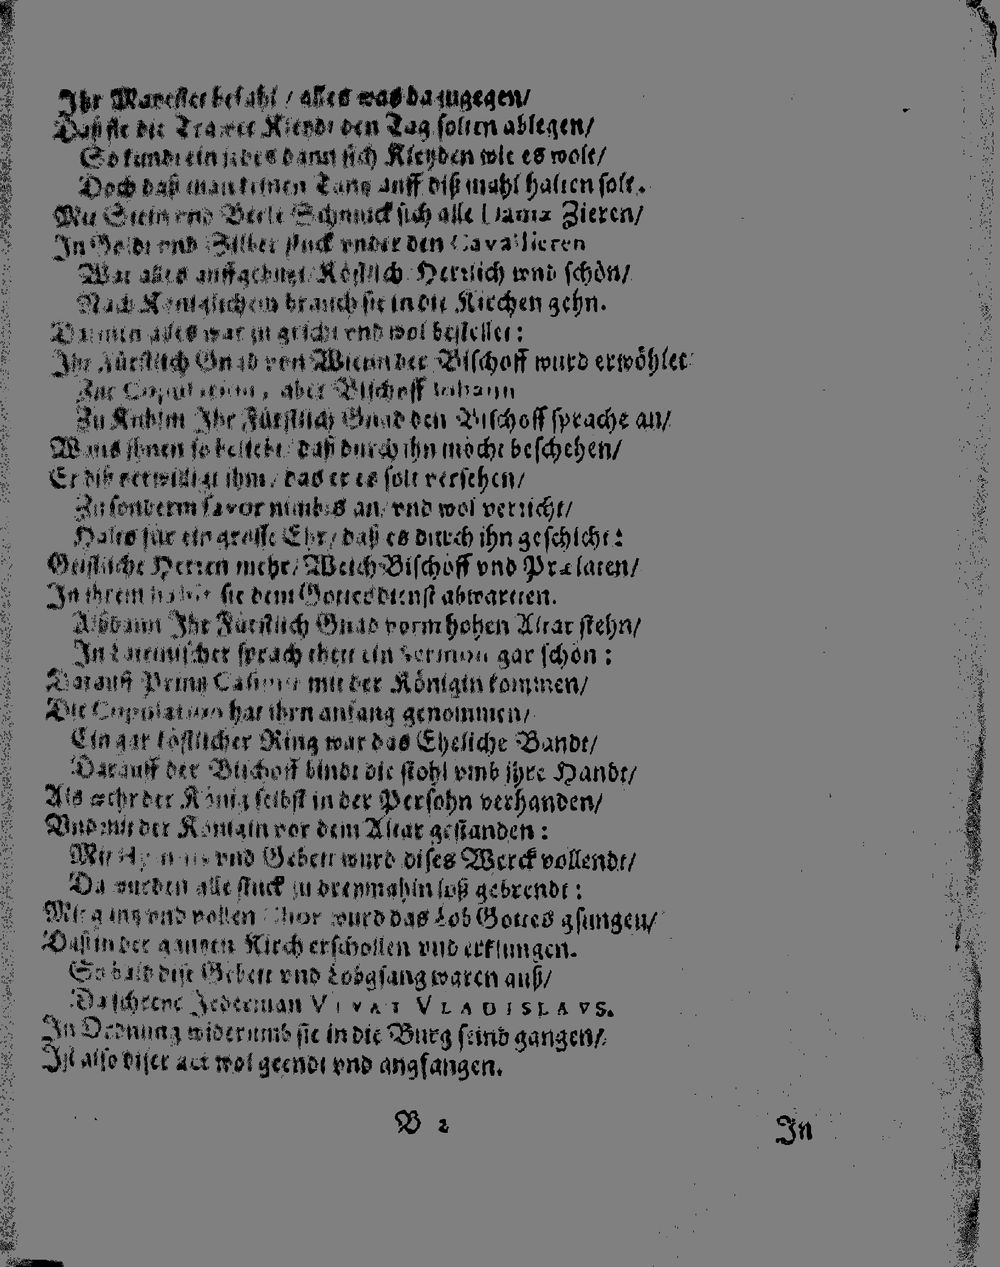 Ihr Mayestet befahl / alles was da zugegen/
Daß sie die Trawer Kleydt den Tag solten ablegen/
So kundt ein jedes dann sich Kleyden wie es wolt/
Doch daß man keinen Tantz auff diß mahl halten solt.
Mit Stein vnd Berle Schmuck sich alle Dama Zieren/
In Goldt vnd Silber stuck vnder den Cavallieren
War alles auffgebutzt/ Köstlich Herrlich vnd schön/
Nach Königlichem brauch sie in die Kirchen gehn.
Darinn alles war zu gricht vnd wol bestellet:
Ihr Fürstlich Gnad von Wienn der Bischoff wurd erwöhlet
Zur Copulation, aber Bischoff Iohann
Zu Ihr Fürstlich Gnad den Bischoff sprache an/
Wans ihnen so beliebt/ daß durch ihn möcht beschehen/
Er diß verwilligt ihm/ das er es solt versehen/
Zu sonderm favor nimbts an/ vnd wol verricht/
Haltes für ein grosse Ehr/ daß es durch ihn geschicht:
Geistliche Herren mehr/ Weich-Bischoff vnd Prælaten/
In ihrem habit sie dem Gottesdienst abwarten.
Alßdann Ihr Fürstlich Gnad vorm hohen Altar stehn/
In Lateinischer sprach thett ein Sermon gar schön:
Darauff Printz Casimir mit der Königin kommen/
Die Copulation hat ihrn anfang genommen/
Ein gar köstlicher Ring war das Eheliche Bandt/
Darauff der Bischoff bindt die stohl vmb jhre Handt/
Als wehr der König selbst in der Persohn verhanden/
Vnd mit der Königin vor dem Altar gestanden:
Mit vnd Gebett wurd dises Werck vollendt/
Da wurden alle stuck zu dreymahln loß gebrendt:
Mit gantz vnd vollen Chor wurd das Lob Gottes gsungen/
Daß in der gantzen Kirch erschollen vnd erklungen.
So bald dise Gebett vnd Lobgsang waren auß/
Da schreye Jederman VIVAT VLADISLAVS.
In Ordnung widerumb sie in die Burg seind gangen/
Ist also diser act wol geendt vnd angfangen.
B 2
In